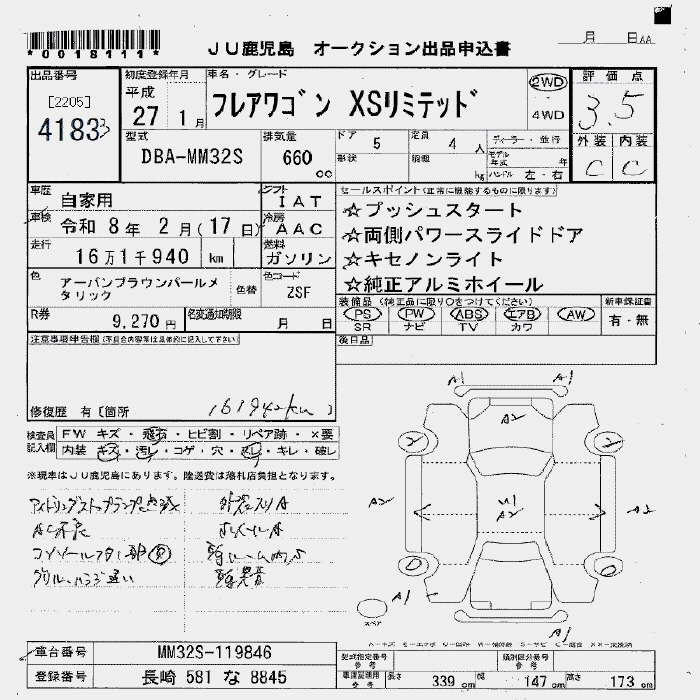 *0018111*
JU鹿児島 オークション出品申込書
月 日 AA
出品番号
[2205]
4183
初度登録年月
平成
27 1月
車名・グレード
フレアワゴン XSリミテッド
2WD
・
4WD
評価点
3.5
外装 内装
C C
型式
DBA-MM32S
排気量
660
cc
ドア 5
形状
定員 4 人
積載 kg
ディーラー・並行
モデル年式 年
ハンドル 左・右
車歴
自家用
シフト
IAT
車検
令和 8年 2月(17日)
冷房
AAC
走行
16万1千940 km
燃料
ガソリン
色
アーバンブラウンパールメタリック
色替
色コード
ZSF
R券
9,270円
名変通知期限
月 日
セールスポイント(正常に機能するものに限ります)
☆プッシュスタート
☆両側パワースライドドア
☆キセノンライト
☆純正アルミホイール
装備品(純正品に限り○をつけてください)
PS PW ABS エアB AW
SR ナビ TV カワ
新車保証書
有・無
後日品
注意事項申告欄(不具合内容等は具体的に記入して下さい)
修復歴 有〔箇所 161942km 〕
検査員記入欄
FW キズ・飛石・ヒビ割・リペア跡・×要
内装 キズ・汚レ・コゲ・穴・凹レ・キレ・破レ
※現車はJU鹿児島にあります。陸送費は落札店負担となります。
アイドリングストップランプ点滅
AC不良
A1 A1
A2
2 2
A2 W1 A2 A2
A1 A1
スペア
車台番号
MM32S-119846
登録番号
長崎 581 な 8845
型式指定番号
参考
類別区分番号
参考
車両記載用
参考
長さ 339 cm
幅 147 cm
高さ 173 cm